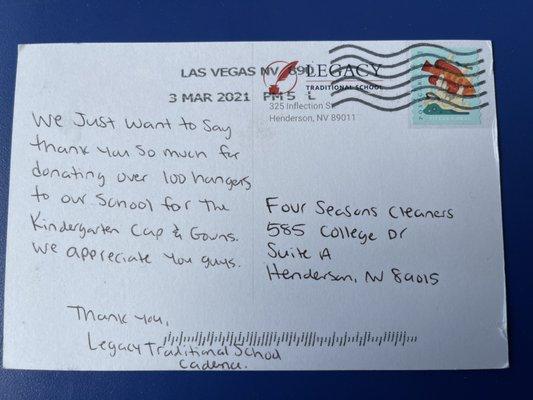 LAS VEGAS NV 890
3 MAR 2021 PM 5 L
LEGACY
TRADITIONAL SCHOOL
325 Inflection St
Henderson, NV 89011
We Just Want to Say
thank you so much for
donating over 100 hangers
to our school for the
Kindergarten Cap & Gowns.
We appreciate you guys.
Thank you,
Legacy Traditional School
Cadence.
Four Seasons Cleaners
585 College Dr
Suite A
Henderson, NV 89015